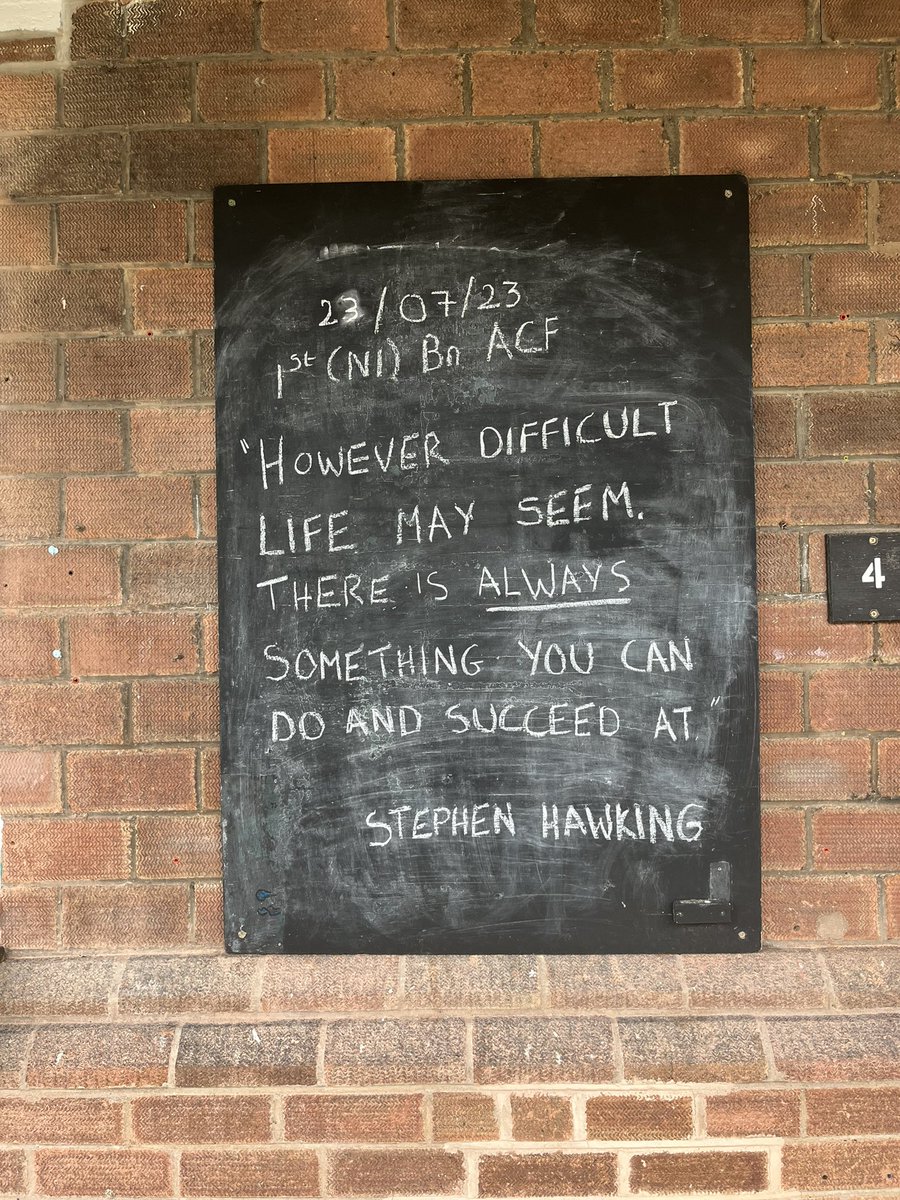 23/07/23
1st (NI) Bn ACF
"HOWEVER DIFFICULT
LIFE MAY SEEM.
THERE IS ALWAYS
SOMETHING YOU CAN
DO AND SUCCEED AT."
STEPHEN HAWKING
4